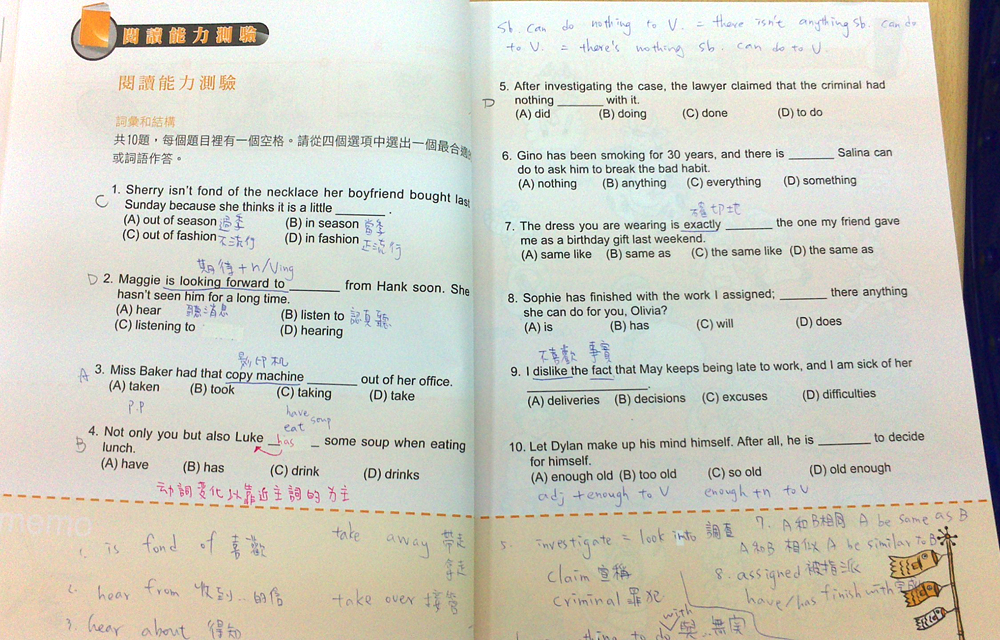 閱讀能力測驗
閱讀能力測驗
詞彙和結構
共10題，每個題目裡有一個空格。請從四個選項中選出一個最合適
或詞語作答。
C 1. Sherry isn't fond of the necklace her boyfriend bought last
Sunday because she thinks it is a little ______ .
(A) out of season 過季 (B) in season 當季
(C) out of fashion 不流行 (D) in fashion 正流行
期待+n/Ving
D 2. Maggie is looking forward to ______ from Hank soon. She
hasn't seen him for a long time.
(A) hear 聽消息 (B) listen to 認真聽
(C) listening to (D) hearing
影印机
A 3. Miss Baker had that copy machine ______ out of her office.
(A) taken (B) took (C) taking (D) take
P.P
have soup
eat
B 4. Not only you but also Luke has some soup when eating
lunch.
(A) have (B) has (C) drink (D) drinks
动詞变化以靠近主詞的为主
memo
1. is fond of 喜歡
2. hear from 收到...的信
3. hear about 得知
take away 帶走
拿走
take over 接管
Sb. can do nothing to V. = there isn't anything sb. can do
to V. = there's nothing sb. can do to V.
D 5. After investigating the case, the lawyer claimed that the criminal had
nothing ______ with it.
(A) did (B) doing (C) done (D) to do
6. Gino has been smoking for 30 years, and there is ______ Salina can
do to ask him to break the bad habit.
(A) nothing (B) anything (C) everything (D) something
確切地
7. The dress you are wearing is exactly ______ the one my friend gave
me as a birthday gift last weekend.
(A) same like (B) same as (C) the same like (D) the same as
8. Sophie has finished with the work I assigned; ______ there anything
she can do for you, Olivia?
(A) is (B) has (C) will (D) does
不喜歡 事實
9. I dislike the fact that May keeps being late to work, and I am sick of her
______ .
(A) deliveries (B) decisions (C) excuses (D) difficulties
10. Let Dylan make up his mind himself. After all, he is ______ to decide
for himself.
(A) enough old (B) too old (C) so old (D) old enough
adj +enough to V enough +n to V
5. investigate = look into 調查
claim 宣稱
criminal 罪犯
with
thing to do 與...無关
7. A和B相同 A be same as B
A和B 相似 A be similar to B
8. assigned 被指派
have/has finish with